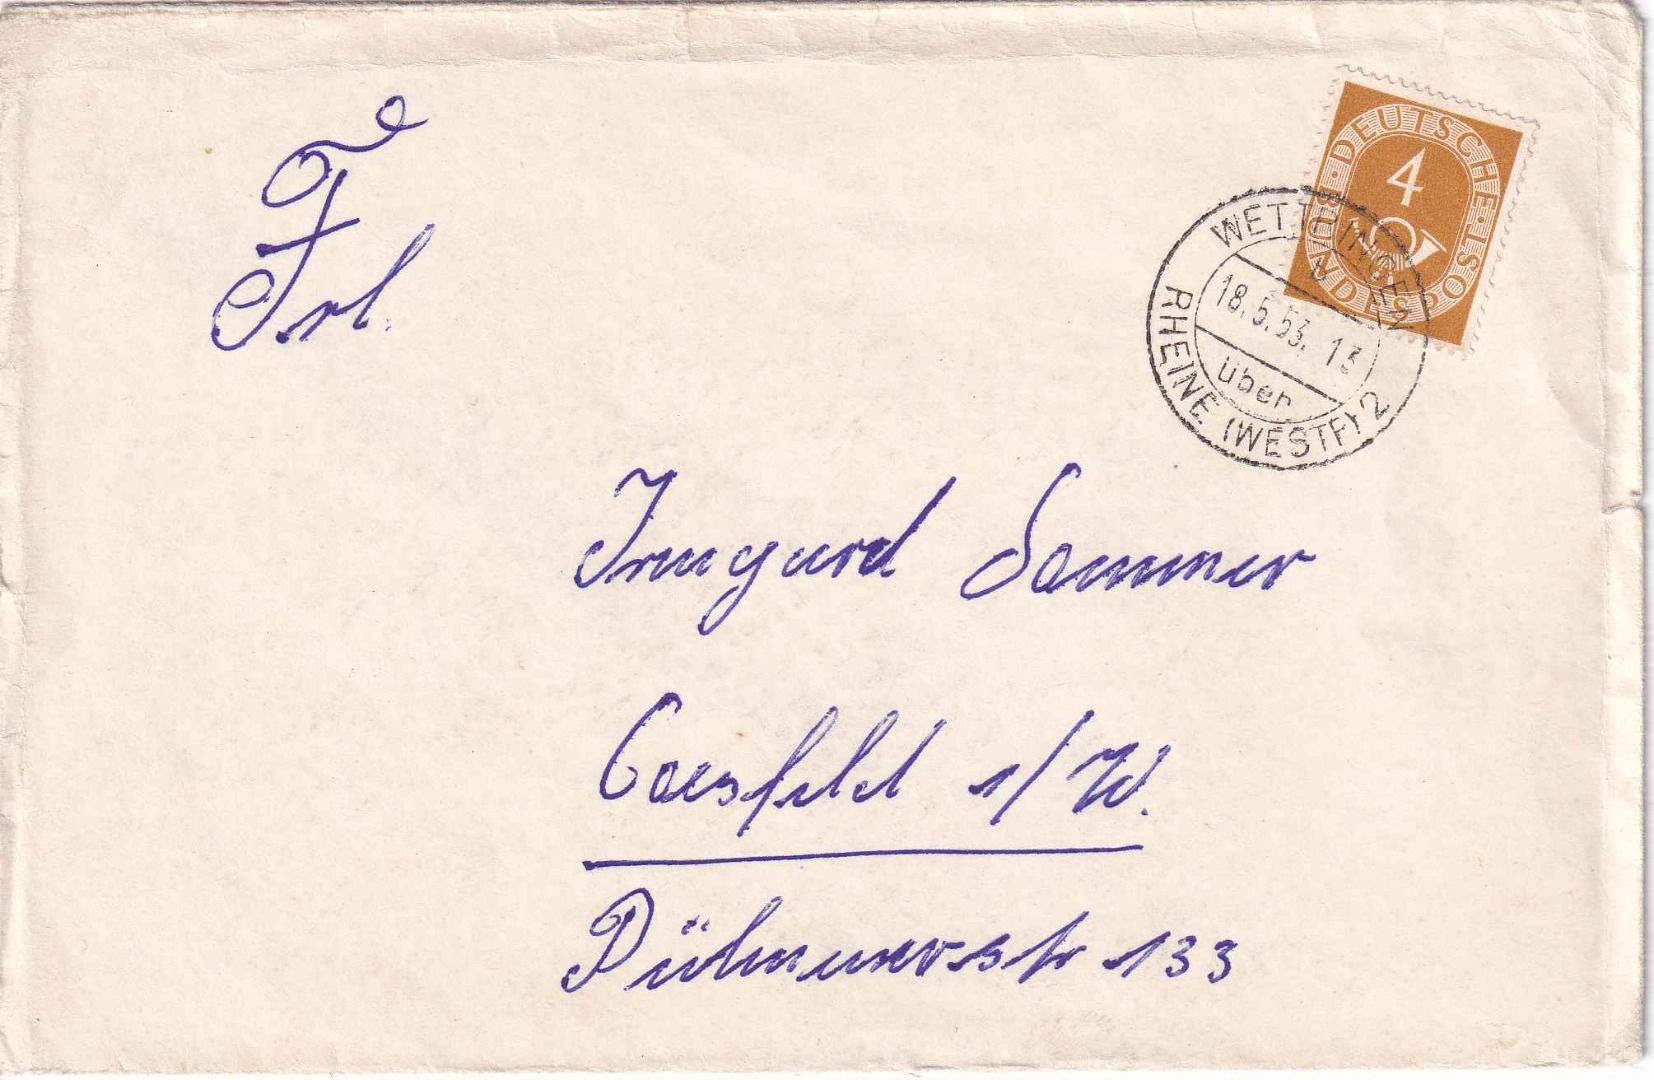 Frl.
DEUTSCHE · POST
BUNDESPOST
4
WETTRINGEN
18.5.53. 13
über
RHEINE (WESTF) 2
Irmgard Sommer
Coesfeld i/W.
Dülmenerstr 133